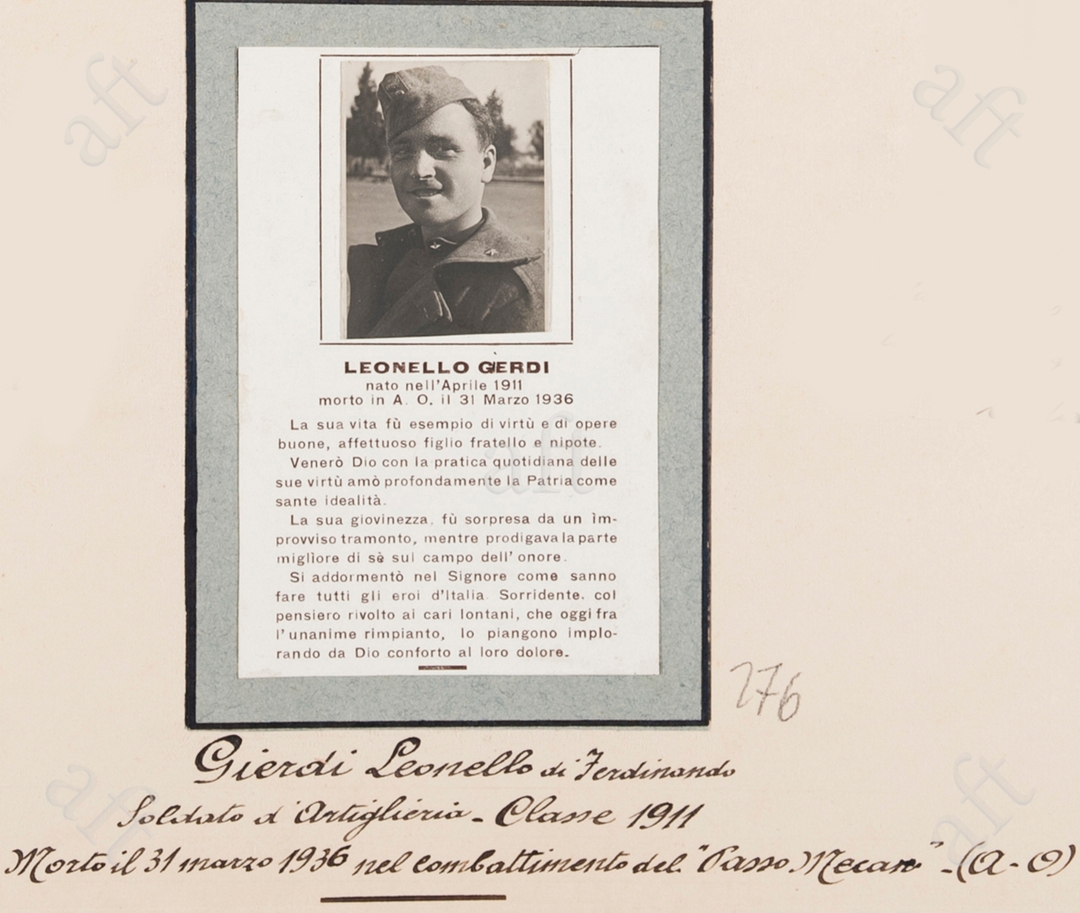 LEONELLO GIERDI
nato nell'Aprile 1911
morto in A. O. il 31 Marzo 1936
La sua vita fù esempio di virtù e di opere
buone, affettuoso figlio fratello e nipote.
Venerò Dio con la pratica quotidiana delle
sue virtù amò profondamente la Patria come
sante idealità.
La sua giovinezza, fù sorpresa da un im-
provviso tramonto, mentre prodigava la parte
migliore di sè sul campo dell' onore.
Si addormentò nel Signore come sanno
fare tutti gli eroi d'Italia. Sorridente. col
pensiero rivolto ai cari lontani, che oggi fra
l'unanime rimpianto, lo piangono implo-
rando da Dio conforto al loro dolore.
276
Gierdi Leonello di Ferdinando
Soldato d'Artiglieria - Classe 1911
Morto il 31 marzo 1936 nel combattimento del "Passo Mecan" - (A-O)
aft
aft
aft
aft
aft